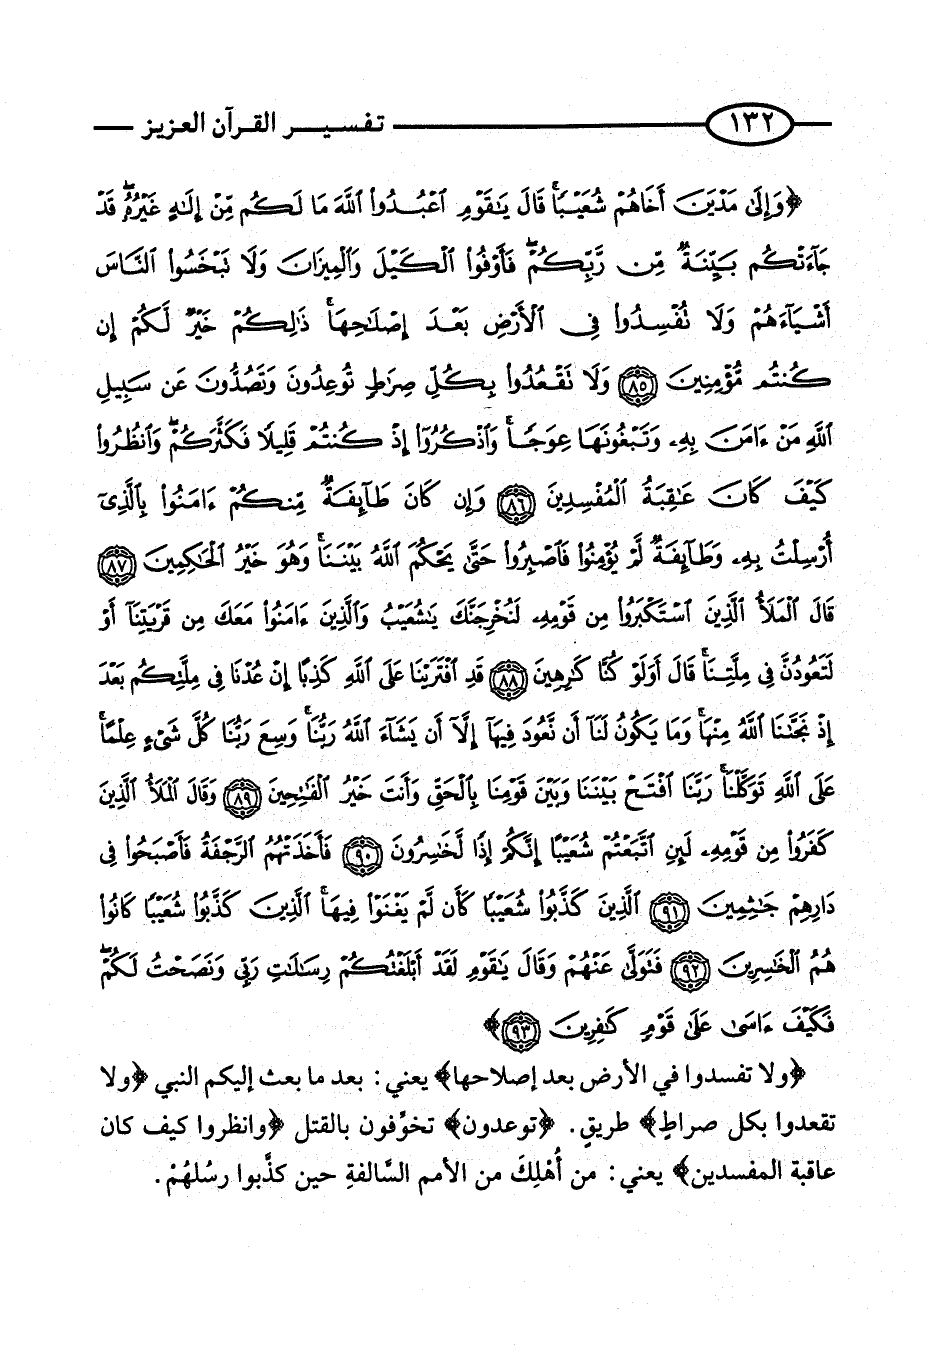 ١٣٢ تفسير القرآن العزيز
﴿وَإِلَىٰ مَدْيَنَ أَخَاهُمْ شُعَيْبًا ۗ قَالَ يَٰقَوْمِ ٱعْبُدُوا۟ ٱللَّهَ مَا لَكُم مِّنْ إِلَٰهٍ غَيْرُهُۥ ۖ قَدْ
جَآءَتْكُم بَيِّنَةٌ مِّن رَّبِّكُمْ ۖ فَأَوْفُوا۟ ٱلْكَيْلَ وَٱلْمِيزَانَ وَلَا تَبْخَسُوا۟ ٱلنَّاسَ
أَشْيَآءَهُمْ وَلَا تُفْسِدُوا۟ فِى ٱلْأَرْضِ بَعْدَ إِصْلَٰحِهَا ۚ ذَٰلِكُمْ خَيْرٌ لَّكُمْ إِن
كُنتُم مُّؤْمِنِينَ ٨٥ وَلَا تَقْعُدُوا۟ بِكُلِّ صِرَٰطٍ تُوعِدُونَ وَتَصُدُّونَ عَن سَبِيلِ
ٱللَّهِ مَنْ ءَامَنَ بِهِۦ وَتَبْغُونَهَا عِوَجًا ۚ وَٱذْكُرُوٓا۟ إِذْ كُنتُمْ قَلِيلًا فَكَثَّرَكُمْ ۖ وَٱنظُرُوا۟
كَيْفَ كَانَ عَٰقِبَةُ ٱلْمُفْسِدِينَ ٨٦ وَإِن كَانَ طَآئِفَةٌ مِّنكُمْ ءَامَنُوا۟ بِٱلَّذِىٓ
أُرْسِلْتُ بِهِۦ وَطَآئِفَةٌ لَّمْ يُؤْمِنُوا۟ فَٱصْبِرُوا۟ حَتَّىٰ يَحْكُمَ ٱللَّهُ بَيْنَنَا ۚ وَهُوَ خَيْرُ ٱلْحَٰكِمِينَ ٨٧
قَالَ ٱلْمَلَأُ ٱلَّذِينَ ٱسْتَكْبَرُوا۟ مِن قَوْمِهِۦ لَنُخْرِجَنَّكَ يَٰشُعَيْبُ وَٱلَّذِينَ ءَامَنُوا۟ مَعَكَ مِن قَرْيَتِنَآ أَوْ
لَتَعُودُنَّ فِى مِلَّتِنَا ۚ قَالَ أَوَلَوْ كُنَّا كَٰرِهِينَ ٨٨ قَدِ ٱفْتَرَيْنَا عَلَى ٱللَّهِ كَذِبًا إِنْ عُدْنَا فِى مِلَّتِكُم بَعْدَ
إِذْ نَجَّىٰنَا ٱللَّهُ مِنْهَا ۚ وَمَا يَكُونُ لَنَآ أَن نَّعُودَ فِيهَآ إِلَّآ أَن يَشَآءَ ٱللَّهُ رَبُّنَا ۚ وَسِعَ رَبُّنَا كُلَّ شَىْءٍ عِلْمًا ۚ
عَلَى ٱللَّهِ تَوَكَّلْنَا ۚ رَبَّنَا ٱفْتَحْ بَيْنَنَا وَبَيْنَ قَوْمِنَا بِٱلْحَقِّ وَأَنتَ خَيْرُ ٱلْفَٰتِحِينَ ٨٩ وَقَالَ ٱلْمَلَأُ ٱلَّذِينَ
كَفَرُوا۟ مِن قَوْمِهِۦ لَئِنِ ٱتَّبَعْتُمْ شُعَيْبًا إِنَّكُمْ إِذًا لَّخَٰسِرُونَ ٩٠ فَأَخَذَتْهُمُ ٱلرَّجْفَةُ فَأَصْبَحُوا۟ فِى
دَارِهِمْ جَٰثِمِينَ ٩١ ٱلَّذِينَ كَذَّبُوا۟ شُعَيْبًا كَأَن لَّمْ يَغْنَوْا۟ فِيهَا ۚ ٱلَّذِينَ كَذَّبُوا۟ شُعَيْبًا كَانُوا۟
هُمُ ٱلْخَٰسِرِينَ ٩٢ فَتَوَلَّىٰ عَنْهُمْ وَقَالَ يَٰقَوْمِ لَقَدْ أَبْلَغْتُكُمْ رِسَٰلَٰتِ رَبِّى وَنَصَحْتُ لَكُمْ ۖ
فَكَيْفَ ءَاسَىٰ عَلَىٰ قَوْمٍ كَٰفِرِينَ ٩٣﴾
﴿ولا تفسدوا في الأرض بعد إصلاحها﴾ يعني: بعد ما بعث إليكم النبي ﴿ولا
تقعدوا بكل صراطٍ﴾ طريقٍ. ﴿توعدون﴾ تخوِّفون بالقتل ﴿وانظروا كيف كان
عاقبة المفسدين﴾ يعني: من أُهْلِكَ من الأمم السَّالفةِ حين كذَّبوا رسُلهُمْ.